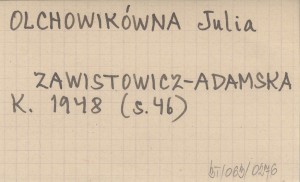 OLCHOWIKÓWNA Julia
ZAWISTOWICZ-ADAMSKA
K. 1948 (s.46)